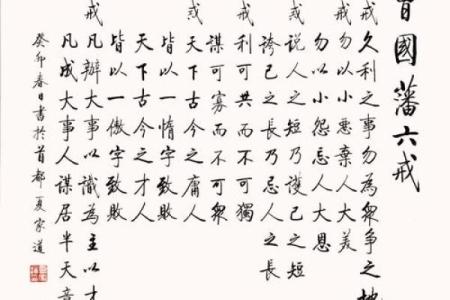 曾國藩六戒
戒久利之事勿為衆争之地
戒勿以小惡棄人大美
勿以小怨忘人大恩
戒說人之短乃護己之短
誇己之長乃忌人之長
戒利可共而不可獨
謀可寡而不可衆
戒天下古今之庸人
皆以一惰字致敗
天下古今之才人
皆以一傲字致敗
戒凡辦大事以識為主以才
凡成大事人謀居半天意
癸卯春日書於首都夏家道